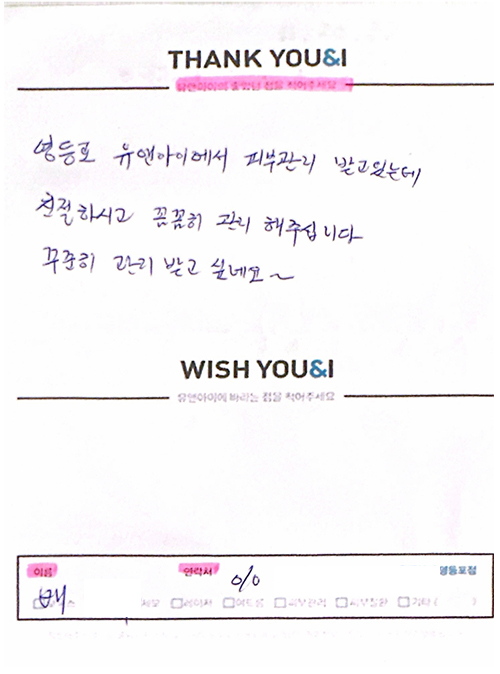 THANK YOU&I
유앤아이의 좋았던 점을 적어주세요
영등포 유앤아이에서 피부관리 받고있는데
친절하시고 꼼꼼히 관리 해주십니다
꾸준히 관리 받고 싶네요~
WISH YOU&I
유앤아이에 바라는 점을 적어주세요
이름
연락처
영등포점
배
제모 레이저 여드름 피부관리 피부질환 기타 ( )